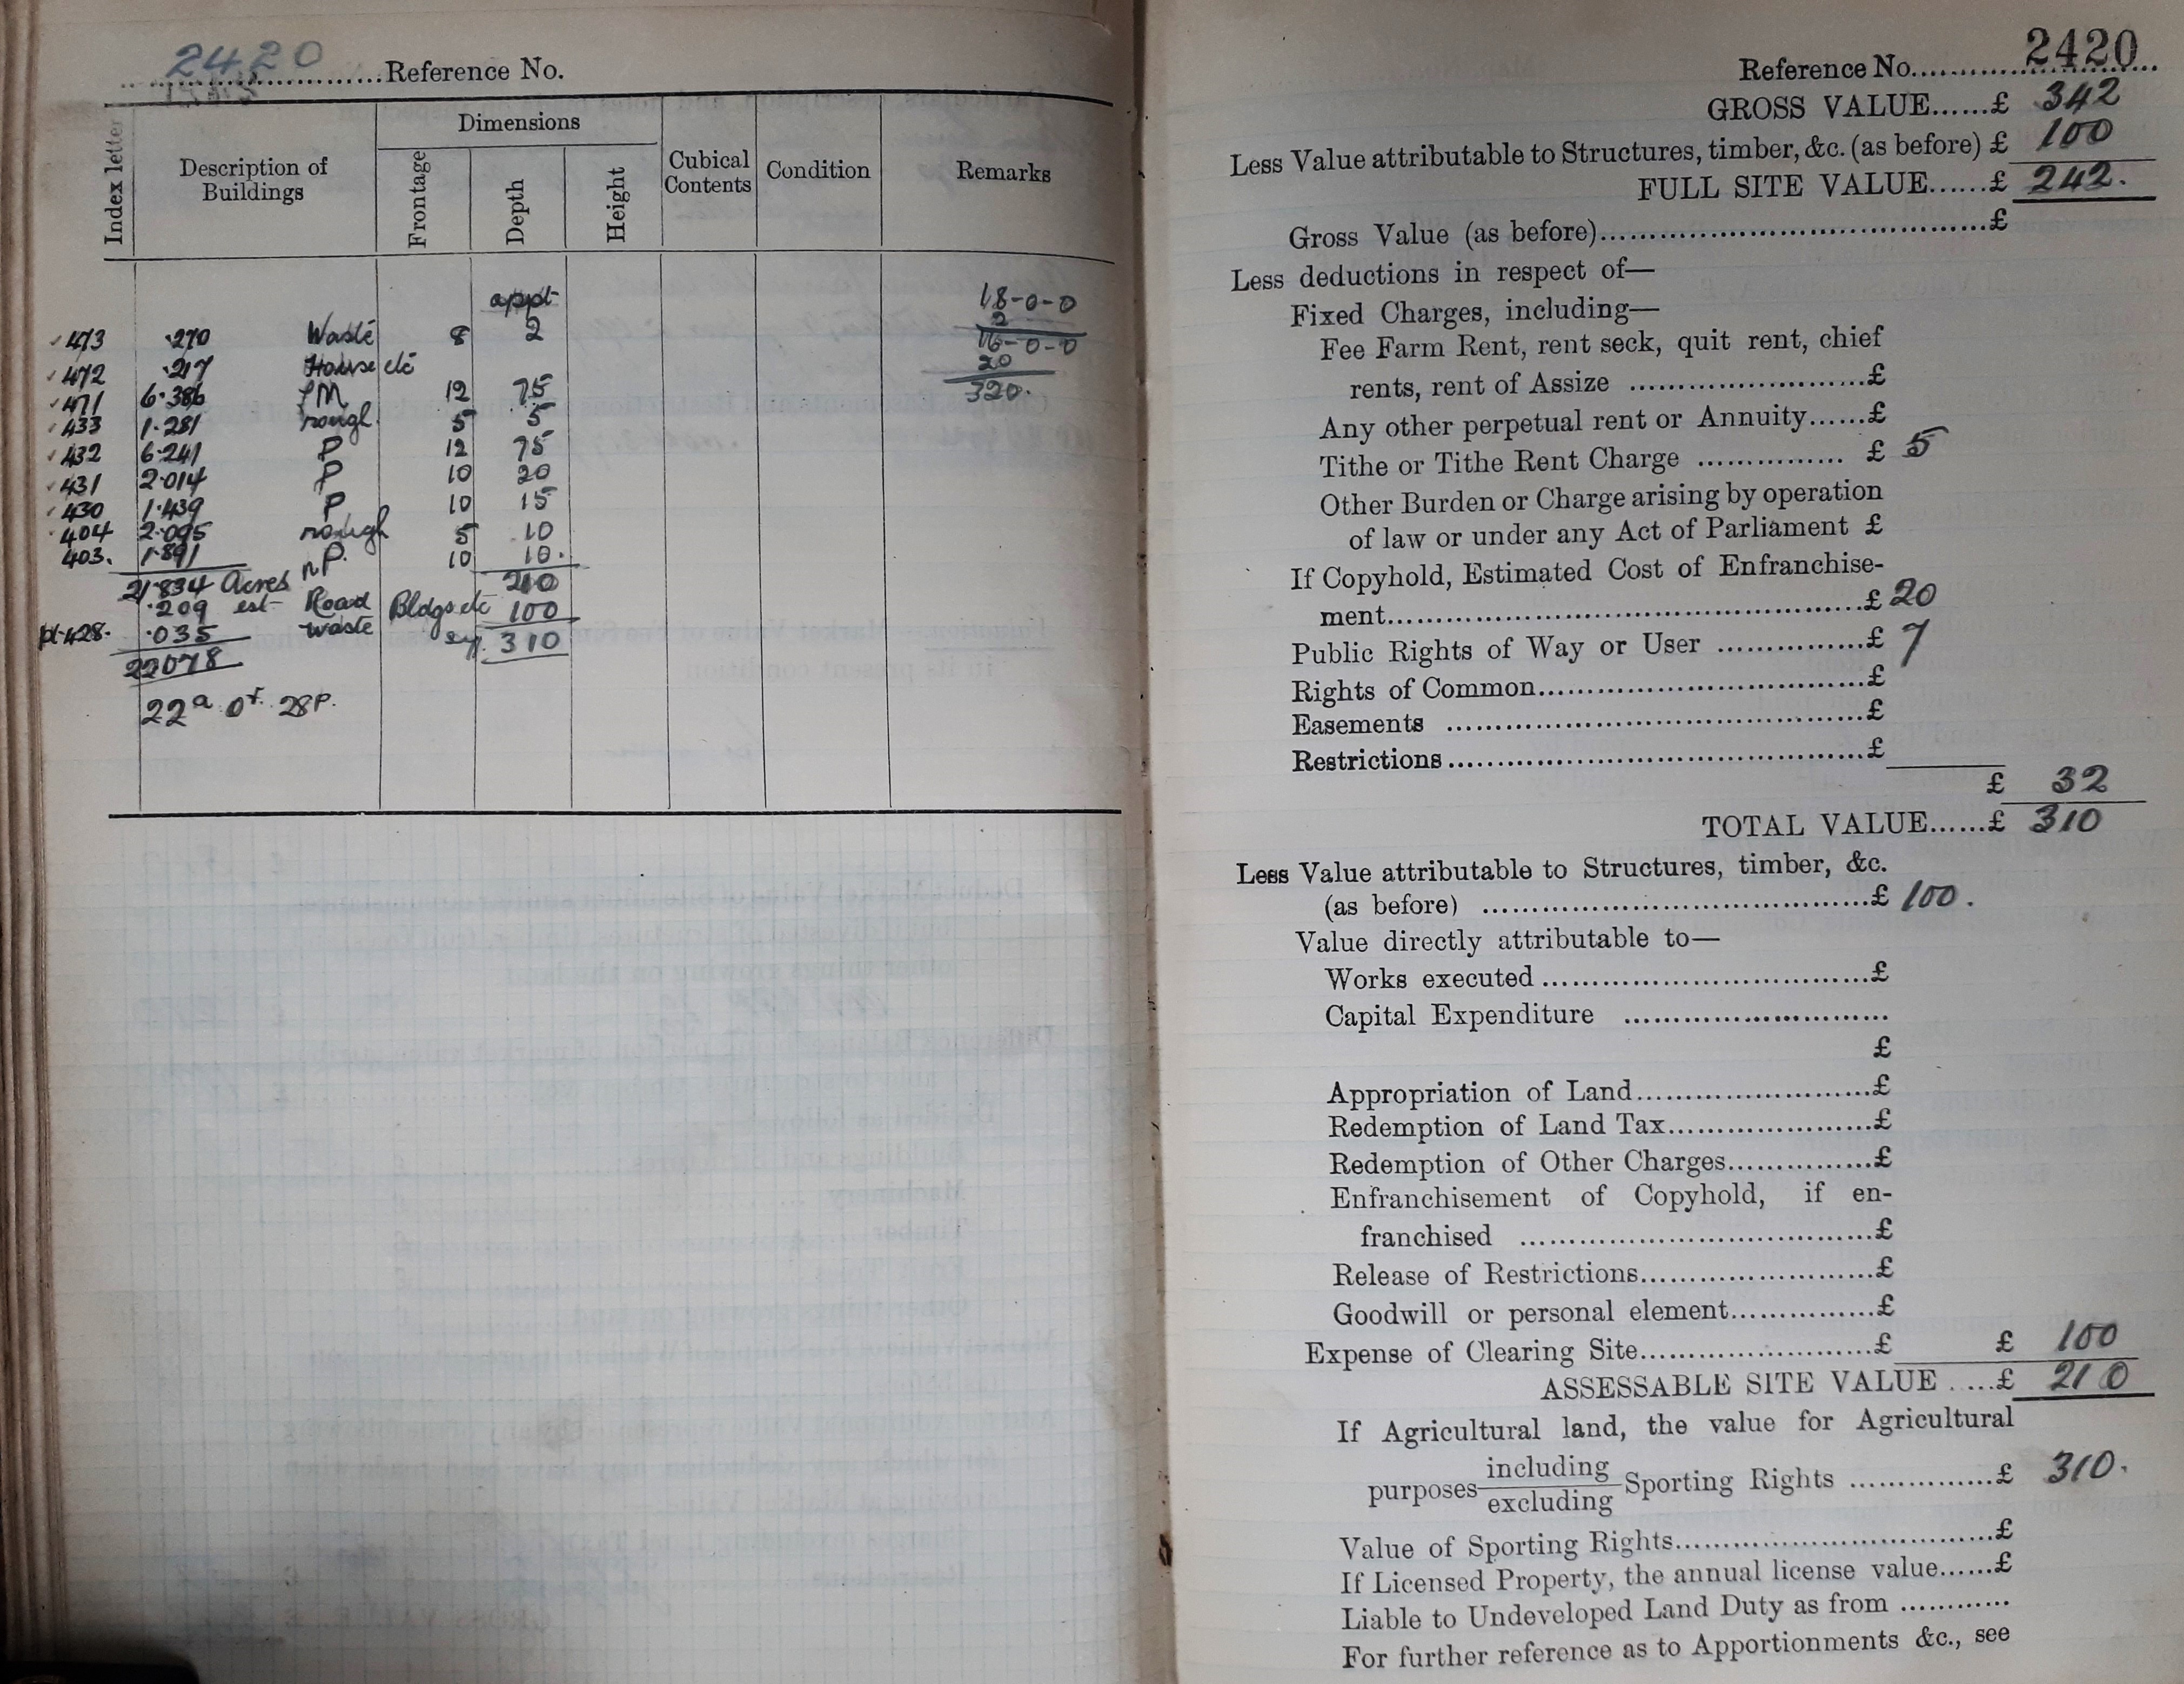 2420 Reference No.
Index letter
Description of Buildings
Dimensions
Frontage
Depth
Height
Cubical Contents
Condition
Remarks
appt
18-0-0
473 .270 Waste 8 2
2
16-0-0
472 .217 House etc
20
471 6.386 PM 12 75
320.
433 1.281 rough 5 5
432 6.241 P 12 75
431 2.014 P 10 20
430 1.439 P 10 15
404 2.095 rough 5 10
403. 1.891 rP. 10 10.
21.834 Acres 210
.209 est Road Bldgs etc 100
pt 428. .035 waste say. 310
22078
22a 0r. 28P.
Reference No. 2420
GROSS VALUE......£ 342
Less Value attributable to Structures, timber, &c. (as before) £ 100
FULL SITE VALUE......£ 242.
Gross Value (as before)......£
Less deductions in respect of—
Fixed Charges, including—
Fee Farm Rent, rent seck, quit rent, chief
rents, rent of Assize ......£
Any other perpetual rent or Annuity......£
Tithe or Tithe Rent Charge ...... £ 5
Other Burden or Charge arising by operation
of law or under any Act of Parliament £
If Copyhold, Estimated Cost of Enfranchise-
ment......£ 20
Public Rights of Way or User ......£ 7
Rights of Common......£
Easements ......£
Restrictions......£
£ 32
TOTAL VALUE......£ 310
Less Value attributable to Structures, timber, &c.
(as before) ......£ 100.
Value directly attributable to—
Works executed......£
Capital Expenditure ......
£
Appropriation of Land......£
Redemption of Land Tax......£
Redemption of Other Charges......£
Enfranchisement of Copyhold, if en-
franchised ......£
Release of Restrictions......£
Goodwill or personal element......£
Expense of Clearing Site......£ £ 100
ASSESSABLE SITE VALUE .....£ 210
If Agricultural land, the value for Agricultural
purposes including excluding Sporting Rights ......£ 310.
Value of Sporting Rights......£
If Licensed Property, the annual license value......£
Liable to Undeveloped Land Duty as from ......
For further reference as to Apportionments &c., see